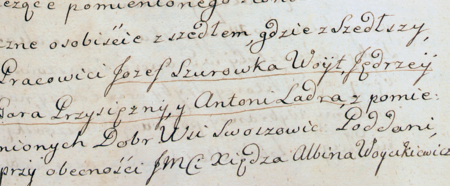 czne osobiście zszedłem, gdzie zszedłszy,
Pracowici Jozef Szurowka Woyt, Jędrzeÿ
Gara Przysięznÿ, y Antoni Ladra, z pomie:
nionych Dobr Wsi Swoszowic Poddani,
przy obecności JMCi Xiędza Albina Woycikiewicz